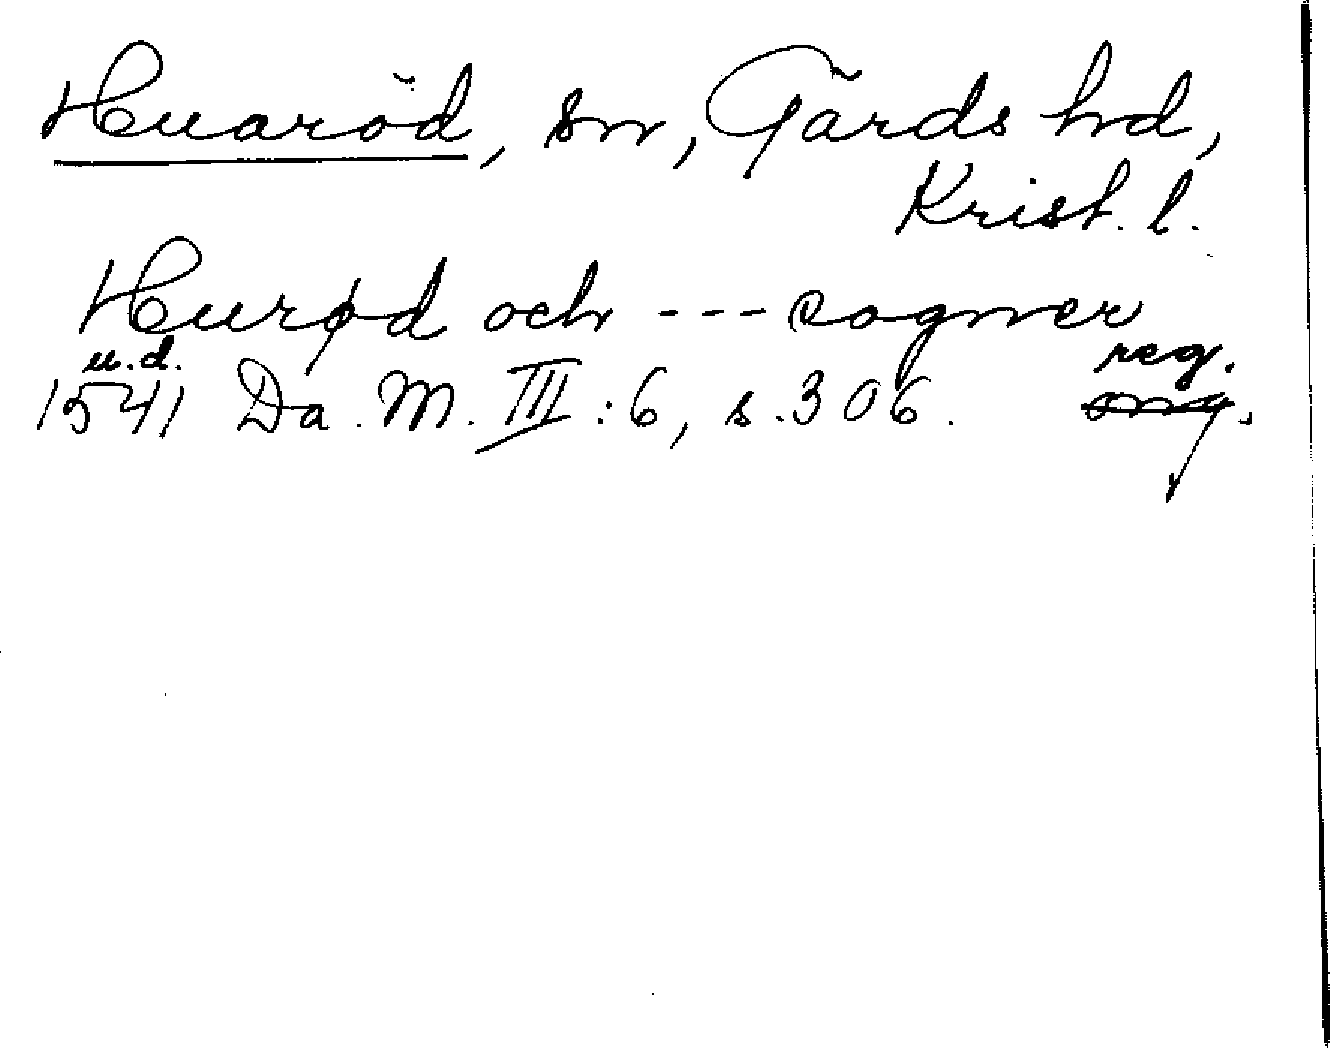 Huaröd, sn, Gärds hd,
Krist. l.
Hurød och --- sogner
u.d. reg.
1541 Da. M. III : 6, s. 306. org.